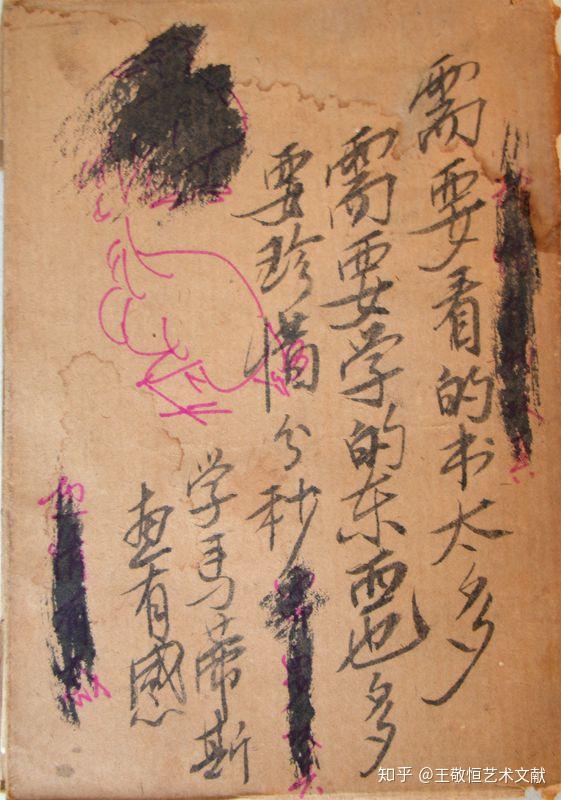 需要看的书太多
需要学的东西也多
要珍惜分秒
学马蒂斯
画有感
知乎 @王敬恒艺术文献